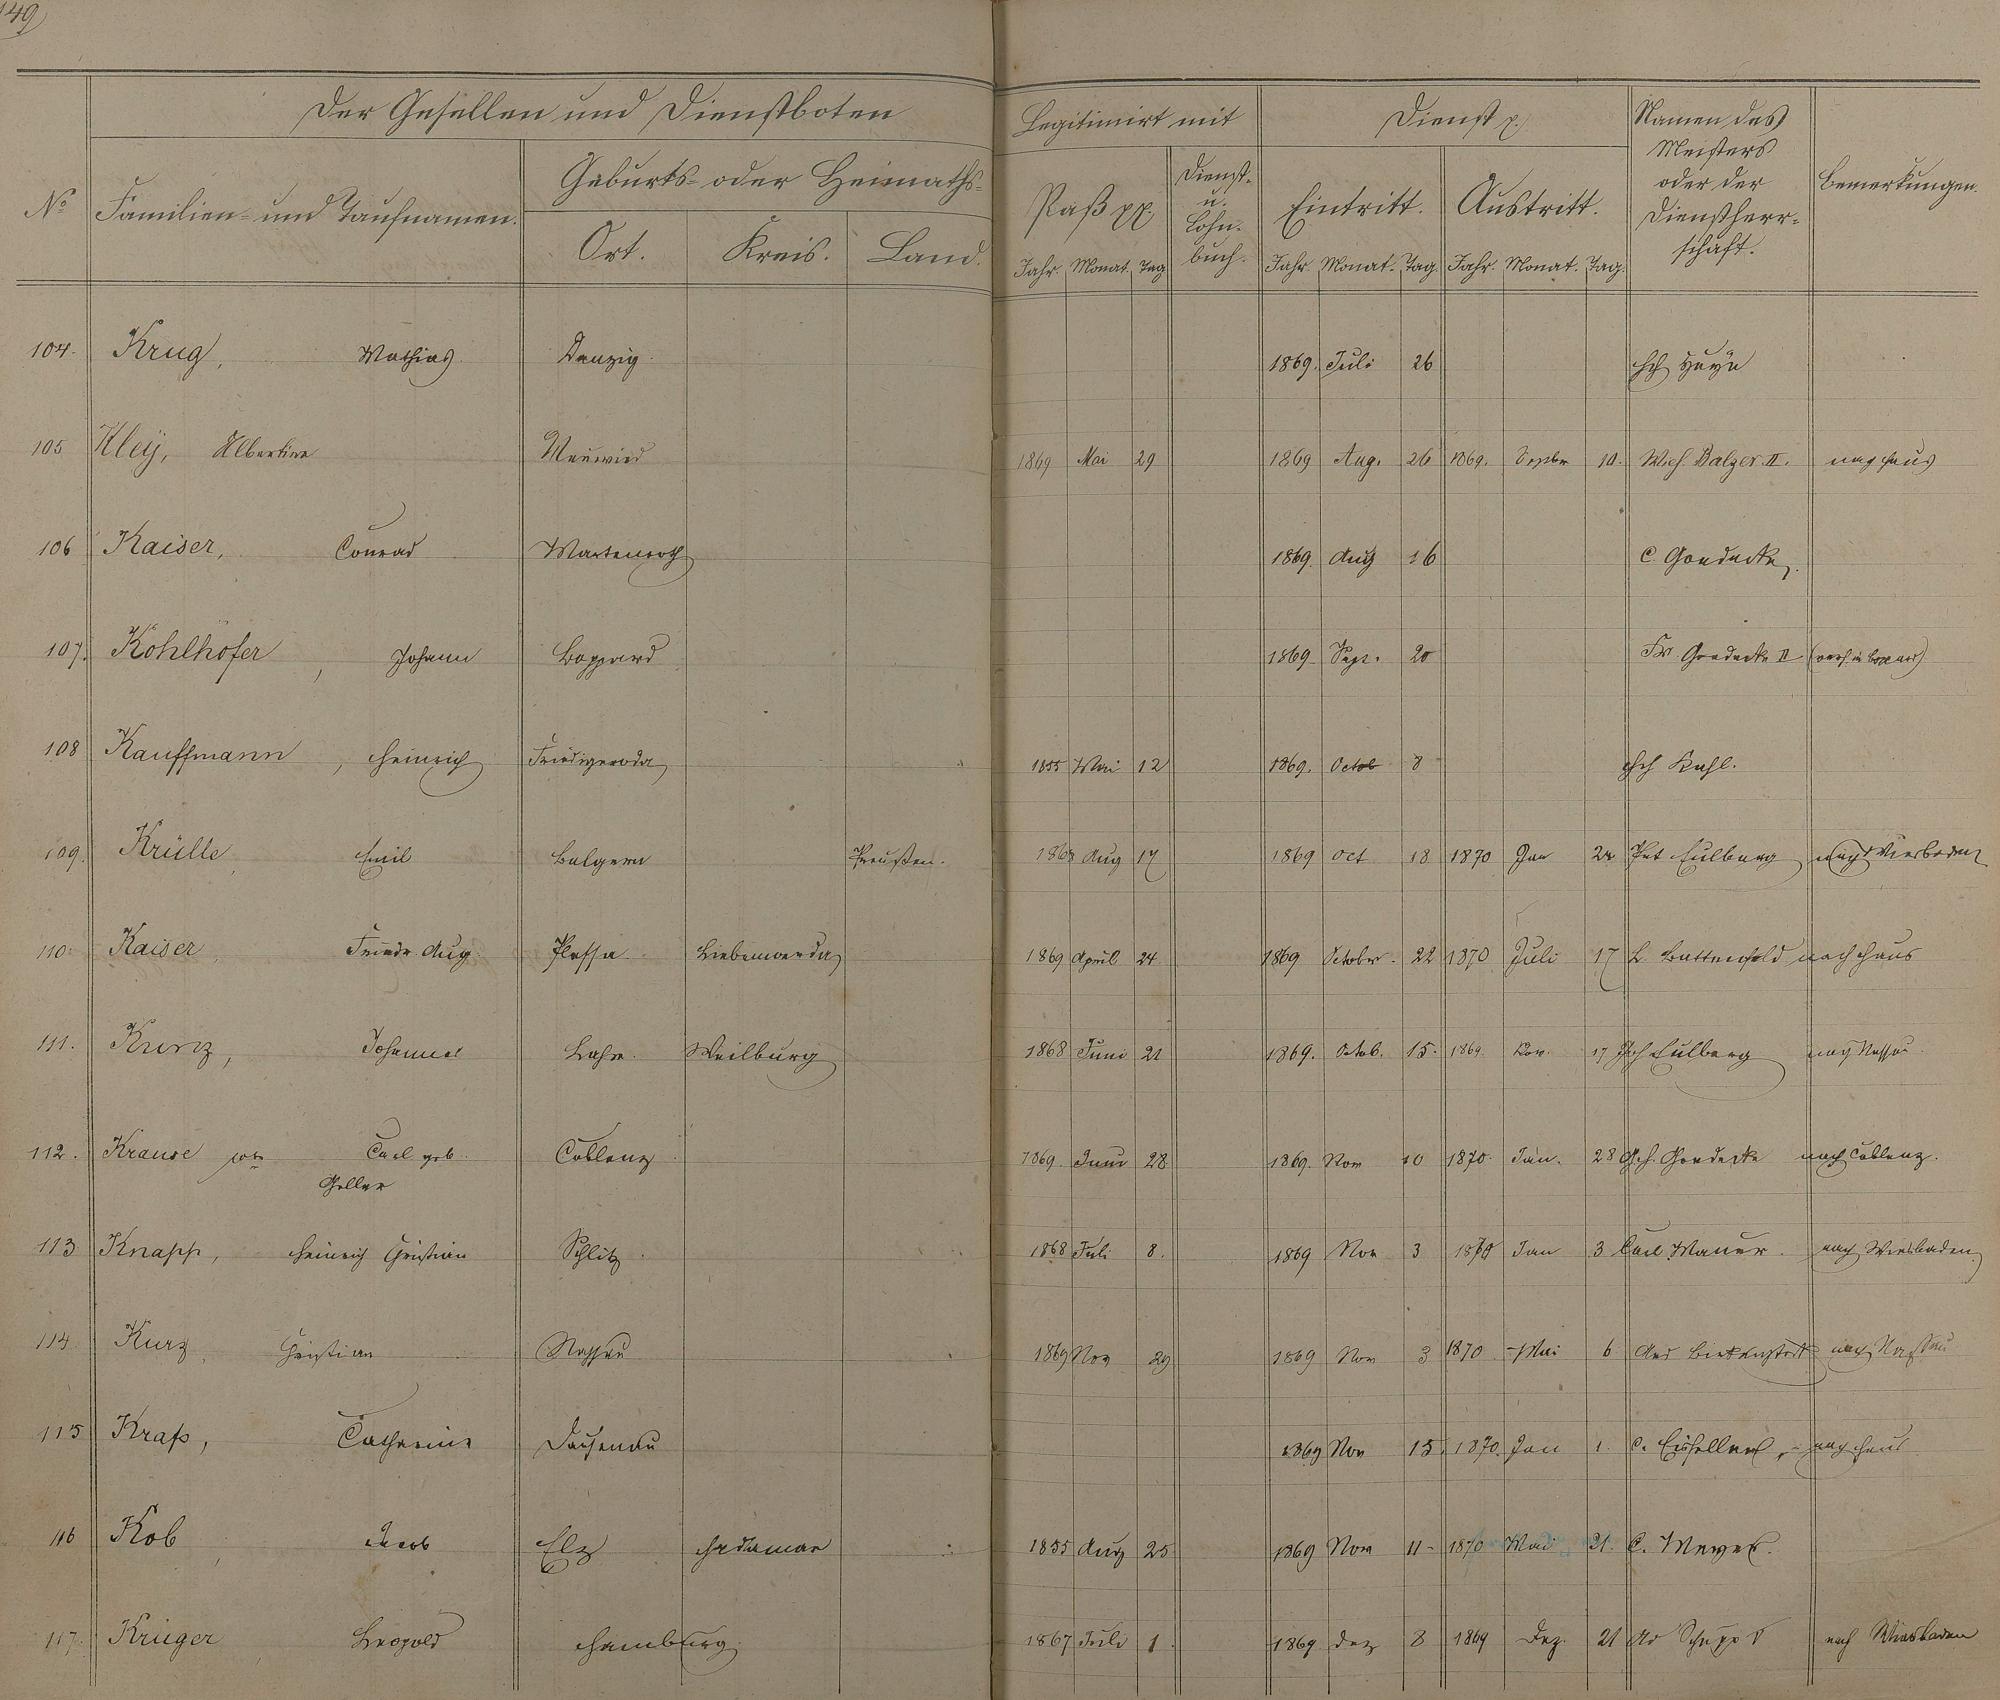 149
Der Gesellen und Dienstboten
Legitimirt mit
Dienst p.
Namen des
Meisters
oder der
Dienstherr-
schaft.
Bemerkungen.
No
Familien- und Taufnamen.
Geburts- oder Heimaths-
Ort. Kreis. Land.
Paß pp.
Dienst-
u.
Lohn-
buch.
Eintritt. Austritt.
Jahr. Monat. Tag Jahr. Monat. Tag. Jahr. Monat. Tag.
104. Krug, Mathias Danzig. 1869. Juli 26
105 Kley, Albertine Neuwied 1869 Mai 29 1869 Aug. 26 1869. Septbr 10. Wilh. Balzer II. nach Haus
106 Kaiser, Conrad 1869. Aug 16 C. Goedecke
107. Kohlhöfer, Johann Boppard 1869 Sept. 20 Fr. Goedecke II
108 Kauffmann, Heinrich 1855 Mai 12 1869. Octob 8 Kuhl.
109. Krülle, Emil Belgern Preußen. 1868 Aug 17 1869 Oct 18 1870 Jan Pet Eulberg nach Wiesbaden
110. Kaiser, Friedr. Aug. Plessa Liebenwerda 1869 April 24 1869 October. 22 1870 Juli 17 L. Battenfeld nach Haus
111. Kunz, Johannes Lahr. Weilburg 1868 Juni 21 1869. Octob. 15. 1869. Nov. 17 Eulberg nach Nassau.
112. Krause, Carl geb. Coblenz 1869. Juni 28 1869. Nov 10 1870. Jan. 28 Goedecke nach Coblenz.
Geller
113 Knapp, Heinrich Christian Schlitz. 1868 Juli 8. 1869 Nov 3 1870 Jan 3 Carl Maurer. nach Wiesbaden
114 Kurz, Christian Nassau 1869 Nov 29 1869 Nov 3 1870 Mai 6 nach Nassau
115 Kraß, Catharine Dachsenau 1869 Nov 15. 1870. Jan 1. nach Haus
116 Kob, Jacob Elz Hadamar 1855 Aug 25 1869 Nov 11 1870 Mai 21. C. Meyer.
117. Krüger, Leopold Hamburg 1867 Juli 1. 1869. Dez 8 1869 Dez. 21 Schupp nach Wiesbaden